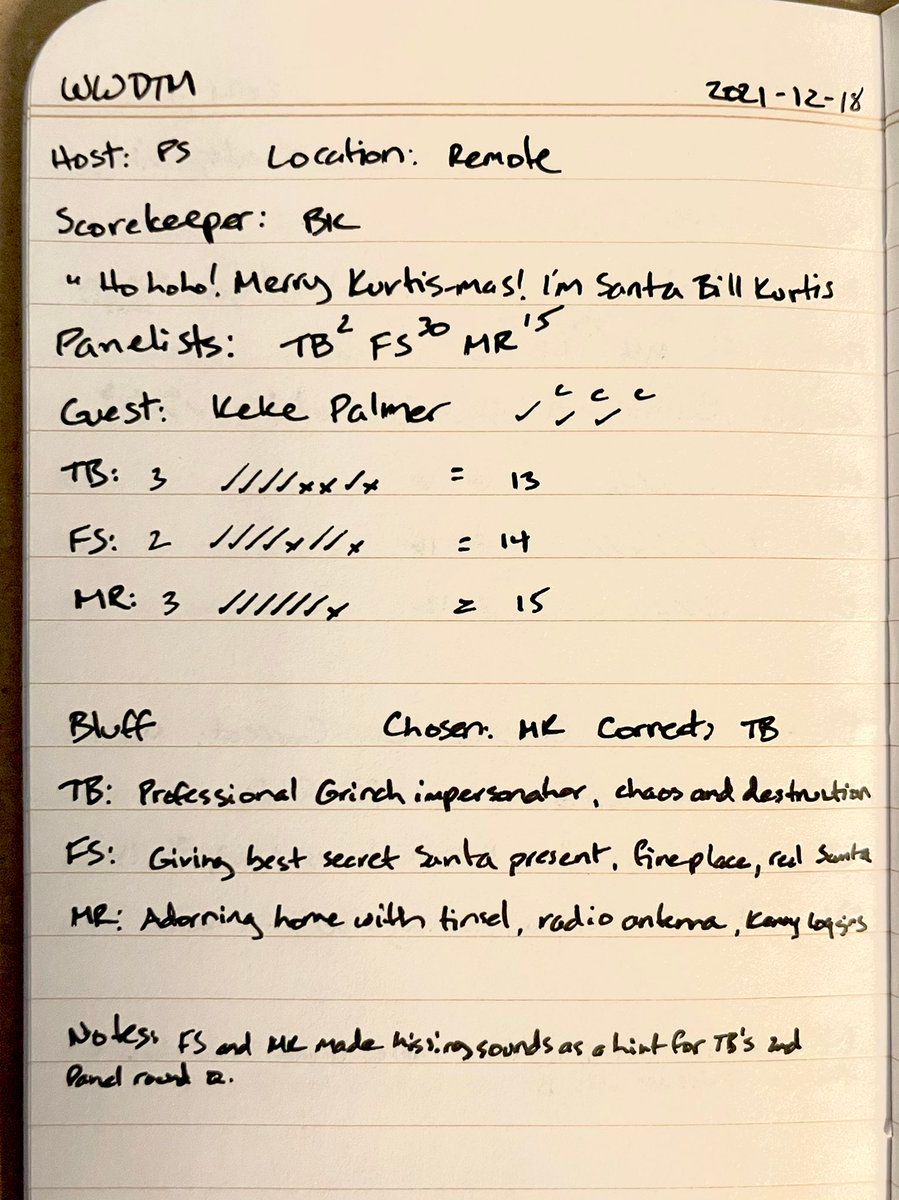 WWDTM 2021-12-18
Host: PS Location: Remote
Scorekeeper: BK
" Ho hoho! Merry Kurtis-mas! I'm Santa Bill Kurtis
Panelists: TB² FS³⁰ MR¹⁵
Guest: Keke Palmer ✓ ᶜ✓ ᶜ✓ ᶜ
TB: 3 ✓✓✓✓xx✓x = 13
FS: 2 ✓✓✓✓x✓✓x = 14
MR: 3 ✓✓✓✓✓✓x = 15
Bluff Chosen: MR Correct: TB
TB: Professional Grinch impersonator, chaos and destruction
FS: Giving best secret Santa present, fireplace, red Santa
MR: Adorning home with tinsel, radio antenna, Kenny Loggins
Notes: FS and MR made hissing sounds as a hint for TB's 2nd
Panel round Q.